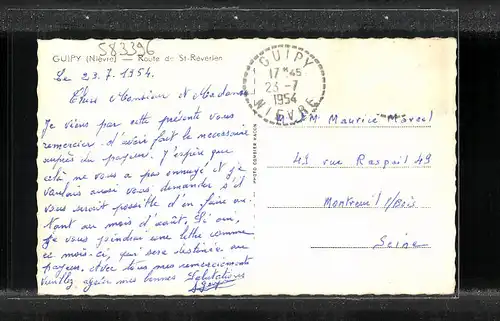 583396
GUIPY (Nièvre) — Route de St-Révérien
Le 23.7.1954.
Chers Monsieur et Madame
Je viens par cette présente vous
remercier d'avoir fait le nécessaire
auprès du payeur. J'espère que
celà ne vous a pas ennuyé et je
voulais aussi vous demander s'il
vous serait possible d'en faire au
tant au mois d'août. Si oui,
je vous joindrai une lettre comme
ce mois-ci, qui sera destinée au
payeur. Avec tous mes remerciements
veuillez agréer mes bonnes Salutations
PHOTO COMBIER MACON
GUIPY
17 H 45
23-7
1954
NIÈVRE
M Maurice Marcel
49 rue Raspail 49
Montreuil s/Bois
Seine